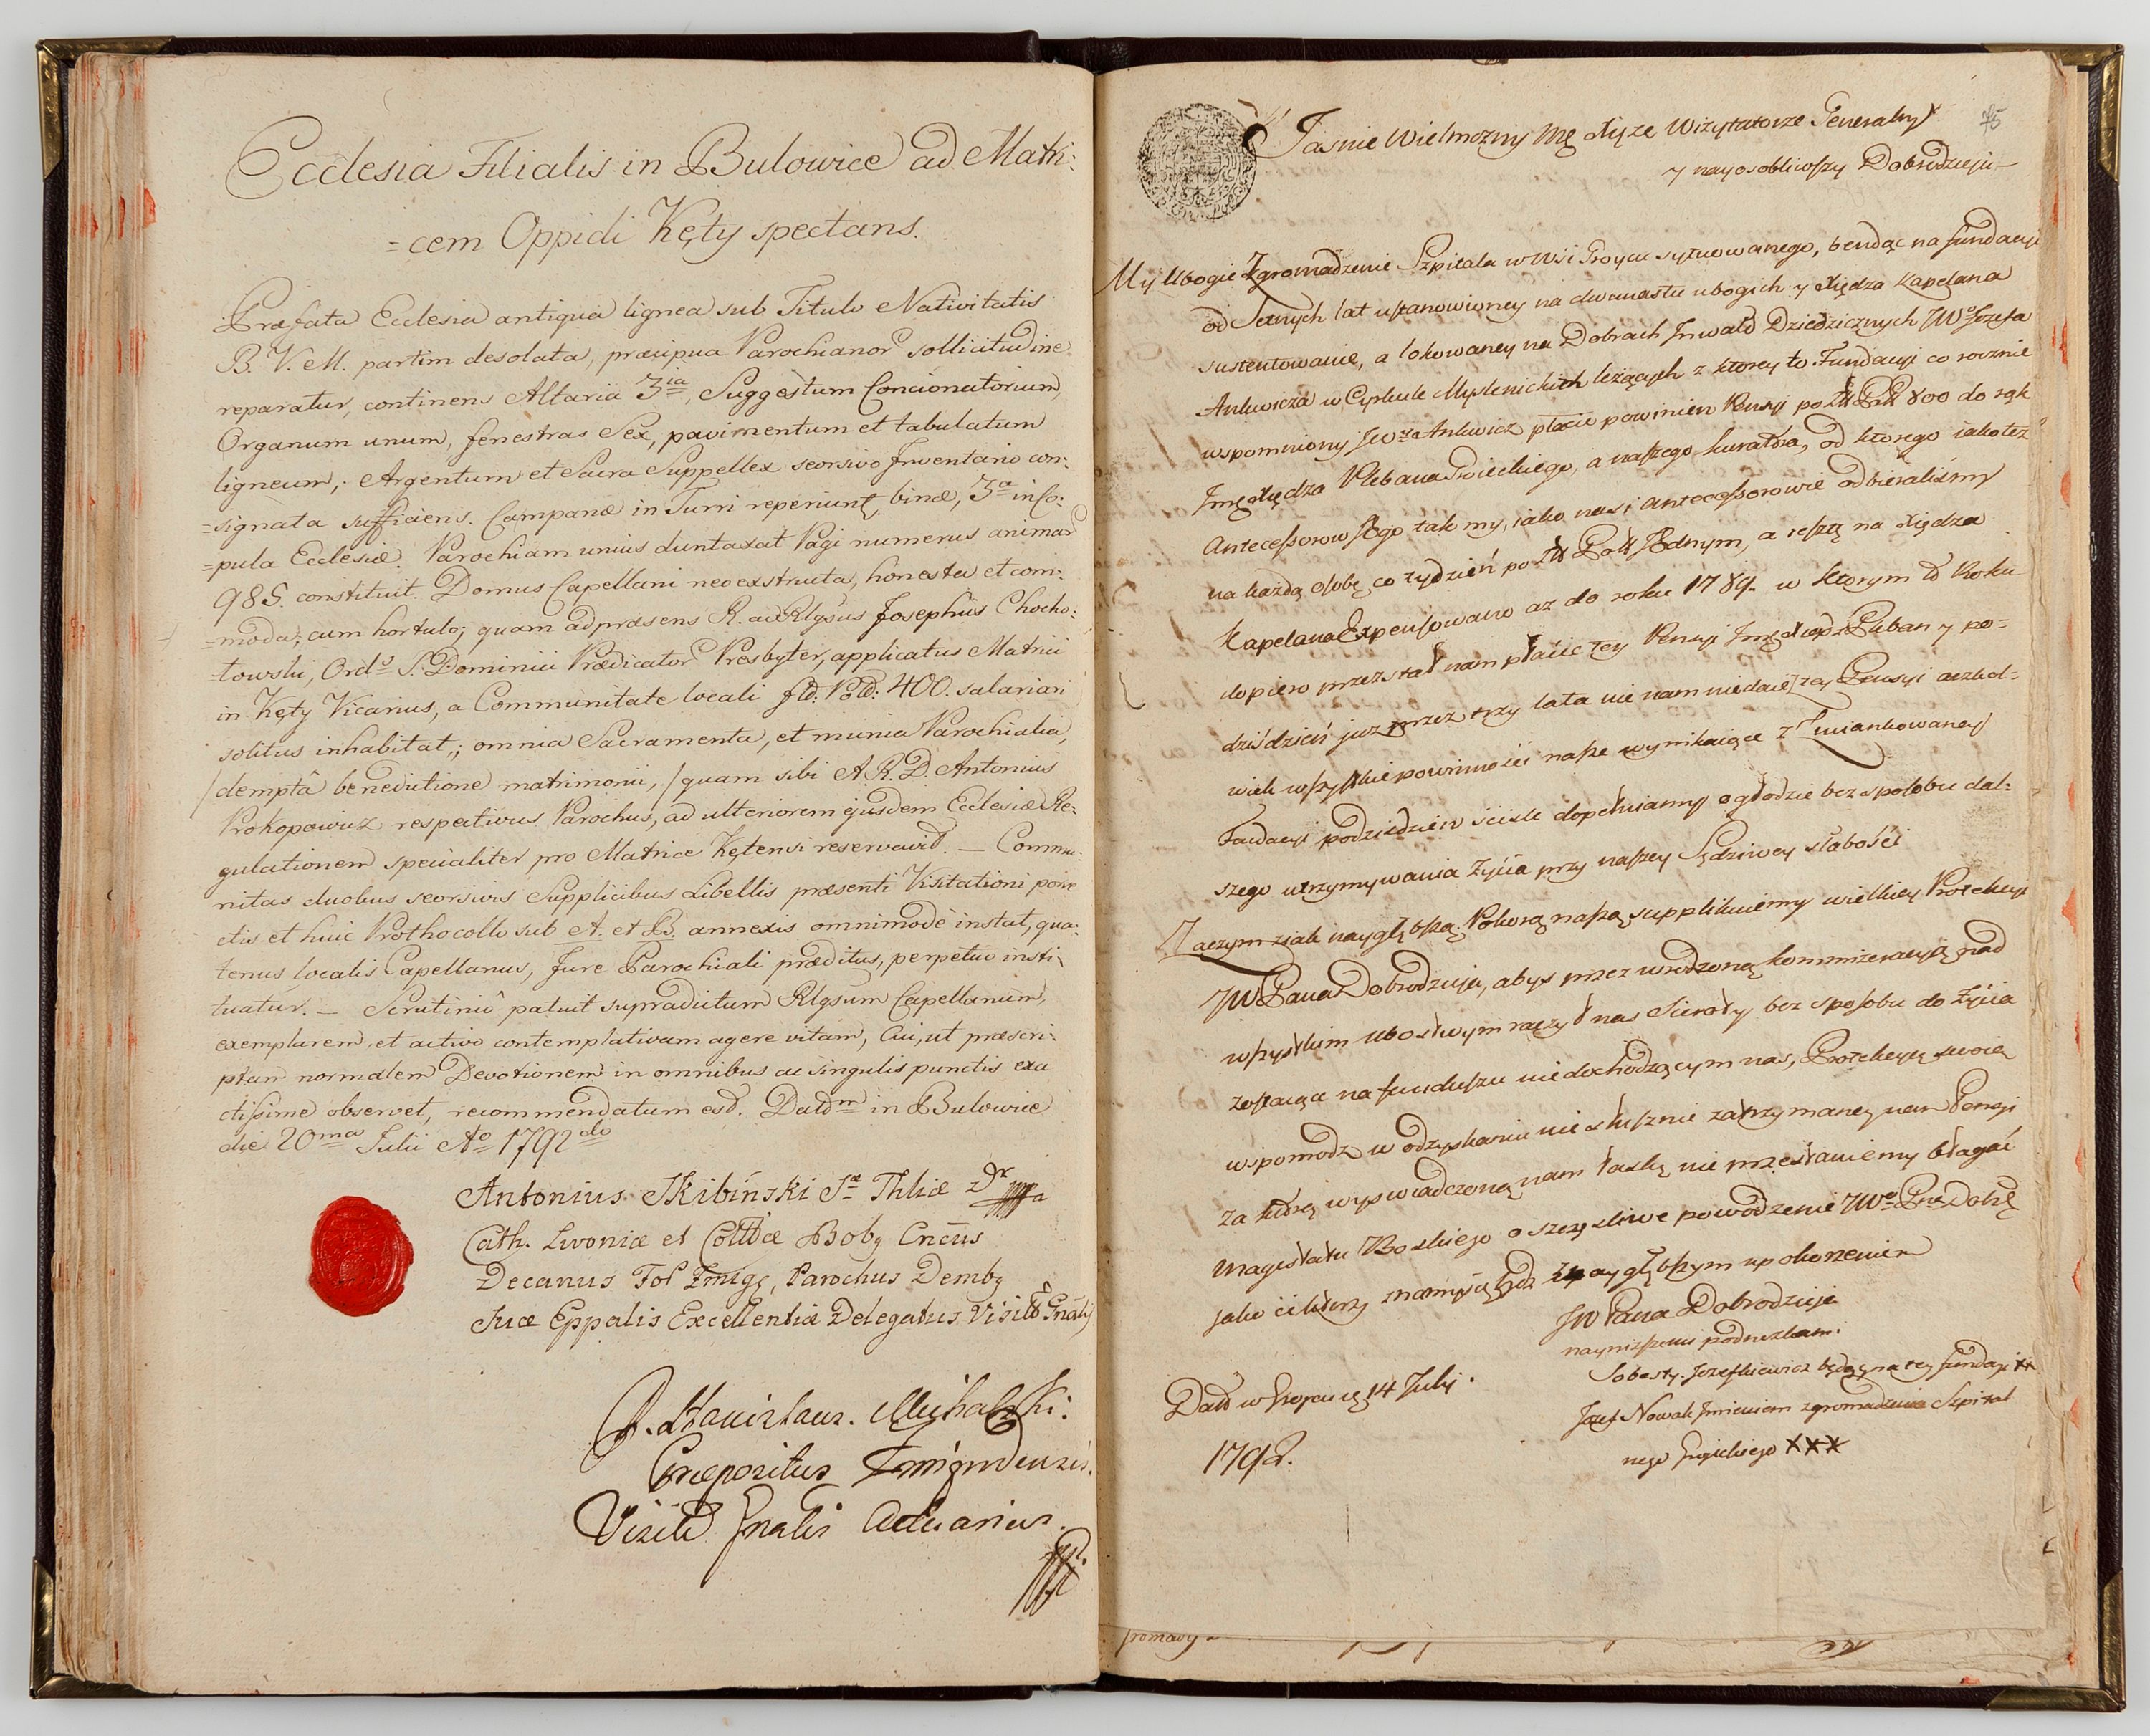 Ecclesia Filialis in Bulowice ad Matri:
=cem Oppidi Kęty spectans.
Præfata Ecclesia antiqua lignea sub Titulo Nativitatis
B. V. M. partim desolata, præcipua Parochianor sollicitudine
reparatur, continens Altaria 3ia, Suggestum Concionatorium,
Organum unum, fenestras Sex, pavimentum et tabulatum
ligneum; Argentum et Sacra Suppellex seorsivo Inventario con:
=signata sufficiens. Campanæ in Turri reperiunt binæ, 3a in Co:
=pula Ecclesiæ. Parochiam unius duntaxat Pagi numerus animar
985. constituit. Domus Capellani neoexstructa, honesta et com:
=moda, cum hortulo; quam ad præsens R. ac Rlgsus Josephus Chocho:
=towski, Ords S. Dominici Prædicator Presbyter, applicatus Matrici
in Kęty Vicarius, a Communitate locali fld: Pold: 400. salariari
solitus inhabitat; omnia Sacramenta, et munia Parochialia,
/dempta benedictione matrimonii,/ quam sibi A. R. D. Antonius
Prokopowicz respectivus Parochus, ad ulteriorem ejusdem Ecclesiæ Re:
gulationem specialiter pro Matrice Kętensi reservavit. — Commu:
nitas duobus seorsivis Supplicibus Libellis præsenti Visitationi porre
ctis et huic Prothocollo sub A. et B. annexis omnimode instat, qua:
tenus localis Capellanus, Jure Parochiali præditus, perpetuo insti:
tuatur. — Scrutinio patuit supradictum Rlgsum Capellanum,
exemplarem et activo contemplativam agere vitam, Cui, ut præscri:
ptam normalem Devotionem in omnibus ac singulis punctis exa
ctissime observet, recommendatum est. Datum in Bulowice
die 20ma Julii Ao 1792do
Antonius Skibiński Sæ Thliæ Dr
Cath. Livoniæ et Colldæ Bobo Cncus
Decanus For Żmigr, Parochus Dembo
Suæ Eppalis Excellentiæ Delegatus Visitor Gnalis
P. Stanislaus Michalski
Præpositus Żmigrodensis.
Visitis Gnalis Actuarius.
75
Jasnie Wielmozny Mę Xięze Wizytatorze Generalny
y nayosobliwszy Dobrodzieju
My Ubogie Zgromadzenie Szpitala w Wsi sytuowanego, bendąc na fundacyi
od Setnych lat ustanowioney na dwunastu ubogich y Xiędza Kapelana
sustentowanie, a lokowaney na Dobrach Inwałd Dziedzicznych JWo Jozefa
Ankwicza w Cyrkule Myslenickich leżących z ktorey to Fundacyi co rocznie
wspomniony JWy Ankwicz płacic powinien Pensyi po Zł Pol 800 do rąk
Imę Xiędza Plebana, a naszego kuratora, od ktorego iako też
Antecessorow Jego tak my, iako nasi Antecessorowie odbieralismy
na każdą osobę co tydzień po Zł Pol Jednym, a resztę na Xiędza
Kapelana Expensowano aż do roku 1789. w ktorym to Roku
dopiero przestał nam płacic tey Pensyi Imę Xiądz Pleban y po=
dziśdzień już przez trzy lata nic nam niedaie tey Pensyi aczkol=
wiek wszystkie powinności nasze wynikaiące z wmiankowaney
Fundacyi podziśdzien scisle dopełniamy o głodzie bez sposobu dal=
szego utrzymywania życia przy naszey Sędziwey słabości
Zaczym ziak naygłębszą Pokorą naszą supplikuiemy wielkiey Protekcyi
JW Pana Dobrodzieja, abys przez wrodzoną kommizeracyią nad
wszystkim ubostwym raczył nas Sieroty bez sposobu do życia
zostaiące na funduszu niedochodzącym nas, Protekcyą swoią
wspomodz w odzyskaniu niesłusznie zatrzymaney nam Pensyi
za którą wyswiadczoną nam łaskę nie przestaniemy błagać
Magestatu Boskiego o szczęsliwe powodzenie JWo Pna Dobę
jako ci którzy znamy się bydz z naygłębszym upokorzeniem
JW Pana Dobrodzieja
naynizszemi podnozkami
Sobesty. Jozefkiewicz będąc na tey fundacyi XX
Jozef Nowak Imieniem zgromadzenia Szpital
nego XXX
Dat w 14 July.
1792.